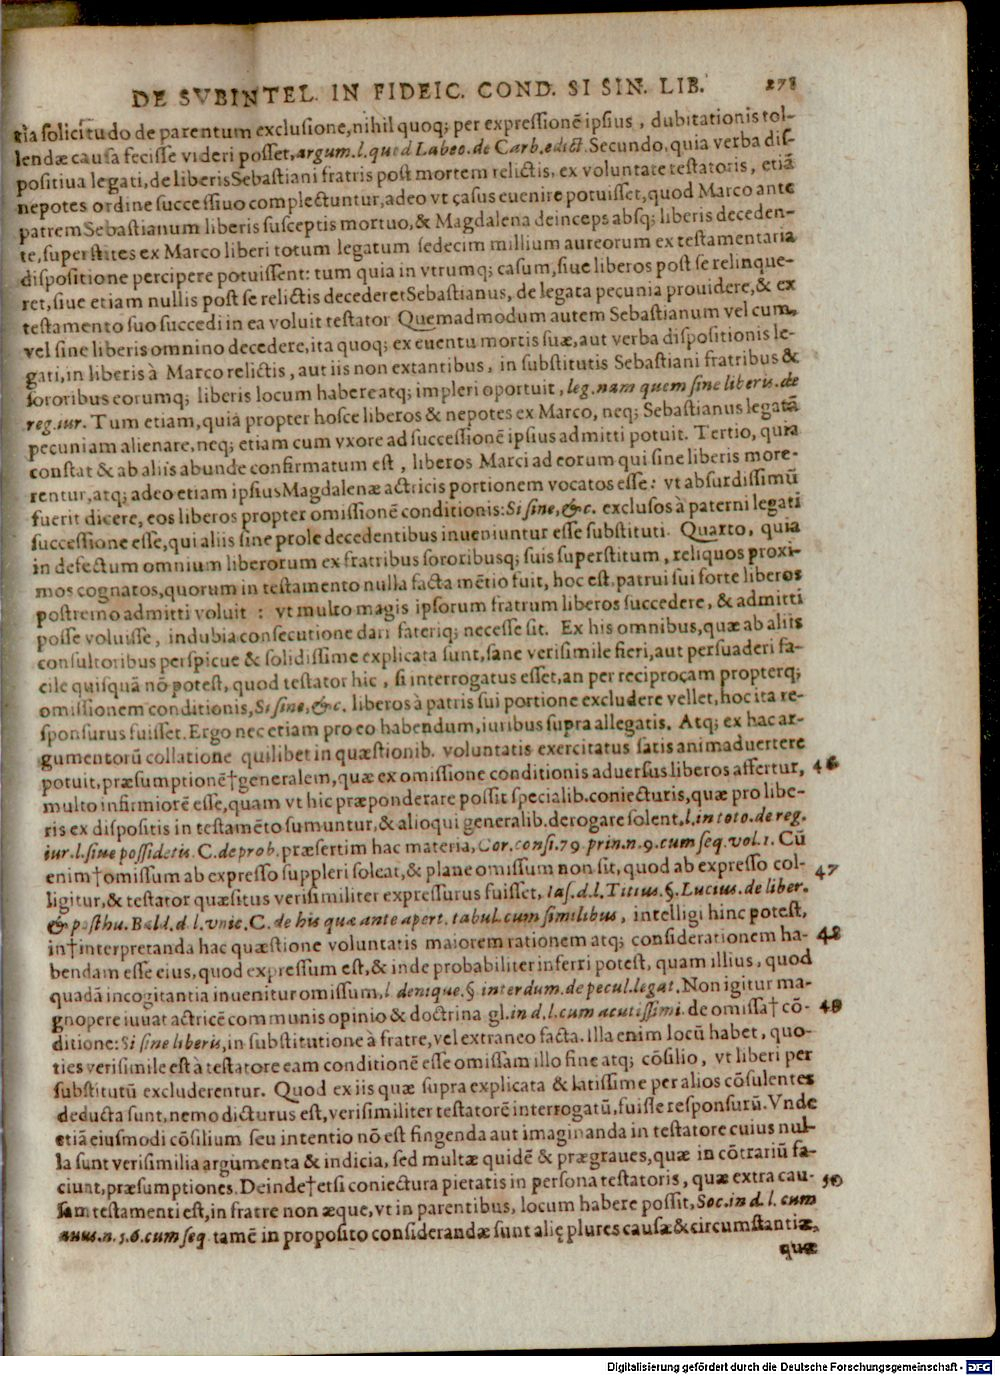 DE SVBINTEL. IN FIDEIC. COND. SI SIN. LIB. 278
tia solicitudo de parentum exclusione, nihil quoq; per expressionē ipsius, dubitationis tol-
lendæ causa fecisse videri posset, argum. l. quod Labeo. de Carb. edict. Secundo, quia verba dis-
positiua legati, de liberis Sebastiani fratris post mortem relictis, ex voluntate testatoris, etiā
nepotes ordine successiuo complectuntur, adeo vt casus euenire potuisset, quod Marco ante
patrem Sebastianum liberis susceptis mortuo, & Magdalena deinceps absq; liberis deceden-
te, superstites ex Marco liberi totum legatum sedecim millium aureorum ex testamentaria
dispositione percipere potuissent: tum quia in vtrumq; casum, siue liberos post se relinque-
ret, siue etiam nullis post se relictis decederet Sebastianus, de legata pecunia prouidere, & ex
testamento suo succedi in ea voluit testator Quemadmodum autem Sebastianum vel cum,
vel sine liberis omnino decedere, ita quoq; ex euentu mortis suæ, aut verba dispositionis le-
gati, in liberis à Marco relictis, aut iis non extantibus, in substitutis Sebastiani fratribus &
sororibus eorumq; liberis locum habere atq; impleri oportuit, leg. nam quem sine liberis. de
reg. iur. Tum etiam, quia propter hosce liberos & nepotes ex Marco, neq; Sebastianus legatā
pecuniam alienare, neq; etiam cum vxore ad successionē ipsius admitti potuit. Tertio, quia
constat & ab aliis abunde confirmatum est, liberos Marci ad eorum qui sine liberis more-
rentur, atq; adeo etiam ipsius Magdalenæ actricis portionem vocatos esse: vt absurdissimū
fuerit dicere, eos liberos propter omissionē conditionis: Si sine, &c. exclusos à paterni legati
successione esse, qui aliis sine prole decedentibus inueniuntur esse substituti. Quarto, quia
in defectum omnium liberorum ex fratribus sororibusq; suis superstitum, reliquos proxi-
mos cognatos, quorum in testamento nulla facta mētio fuit, hoc est, patrui sui forte liberos
postremo admitti voluit : vt multo magis ipsorum fratrum liberos succedere, & admitti
posse voluisse, indubia consecutione dari fateriq; necesse sit. Ex his omnibus, quæ ab aliis
consultoribus perspicue & solidissime explicata sunt, sane verisimile fieri, aut persuaderi fa-
cile quisquā nō potest, quod testator hic, si interrogatus esset, an per reciproçam propterq;
omissionem conditionis, Si sine, &c. liberos à patris sui portione excludere vellet, hoc ita re-
sponsurus fuisset. Ergo nec etiam pro eo habendum, iuribus supra allegatis. Atq; ex hac ar-
gumentorū collatione quilibet in quæstionib. voluntatis exercitatus satis animaduertere
potuit, præsumptionē† generalem, quæ ex omissione conditionis aduersus liberos affertur, 46
multo infirmiorē esse, quam vt hic præponderare possit specialib. coniecturis, quæ pro libe-
ris ex dispositis in testamēto sumuntur, & alioqui generalib. derogare solent, l. in toto. de reg.
iur. l. siue possidetis. C. de prob. præsertim hac materia, Cor. consi. 79. prin. n. 9. cum seq. vol. 1. Cū
enim† omissum ab expresso suppleri soleat, & plane omissum non sit, quod ab expresso col- 47
ligitur, & testator quæsitus verisimiliter expressurus fuisset, Ias. d. l. Titius. §. Lucius. de liber.
& posthu. Bald. d. l. vnic. C. de his quæ ante apert. tabul. cum similibus, intelligi hinc potest,
in† interpretanda hac quæstione voluntatis maiorem rationem atq; considerationem ha- 48
bendam esse eius, quod expressum est, & inde probabiliter inferri potest, quam illius, quod
quadā incogitantia inuenitur omissum, l denique. § interdum. de pecul. legat. Non igitur ma-
gnopere iuuat actricē communis opinio & doctrina gl. in d. l. cum acutissimi. de omissa† cō- 49
ditione: Si sine liberis, in substitutione à fratre, vel extraneo facta. Illa enim locū habet, quo-
ties verisimile est à testatore eam conditionē esse omissam illo fine atq; cōsilio, vt liberi per
substitutū excluderentur. Quod ex iis quæ supra explicata & latissime per alios cōsulentes
deducta sunt, nemo dicturus est, verisimiliter testatorē interrogatū, fuisse responsurū. Vnde
etiā eiusmodi cōsilium seu intentio nō est fingenda aut imaginanda in testatore cuius nul-
la sunt verisimilia argumenta & indicia, sed multæ quidē & prægraues, quæ in cōtrariū fa-
ciunt, præsumptiones. Deinde† etsi coniectura pietatis in persona testatoris, quæ extra cau- 50
sam testamenti est, in fratre non æque, vt in parentibus, locum habere possit, Soc. in d. l. cum
auus. n. 5. 6. cum seq. tamē in proposito considerandæ sunt alię plures causæ & circumstantiæ,
quæ
Digitalisierung gefördert durch die Deutsche Forschungsgemeinschaft - DFG